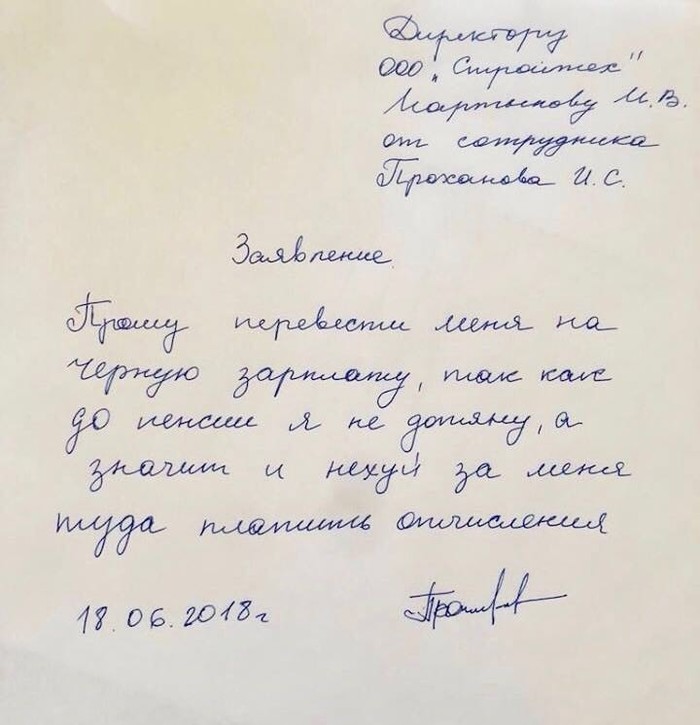 Директору
ООО „Стройтех"
Мартынову И.В.
от сотрудника
Проханова И.С.
Заявление.
Прошу перевести меня на
черную зарплату, так как
до пенсии я не дотяну, а
значит и нехуй за меня
туда платить отчисления
18.06.2018г